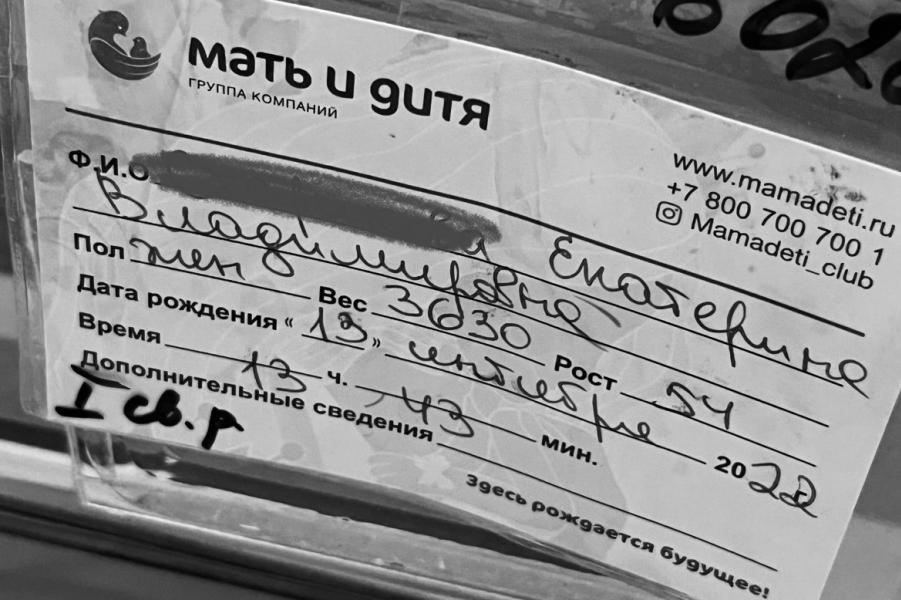 мать и дитя
ГРУППА КОМПАНИЙ
www.mamadeti.ru
+7 800 700 700 1
Mamadeti_club
Ф.И.О Екатерина
Владимировна
Пол жен Вес 3630 Рост 54
Дата рождения « 13 » сентября 2022
Время 13 ч. 43 мин.
Дополнительные сведения
I св. р
Здесь рождается будущее!